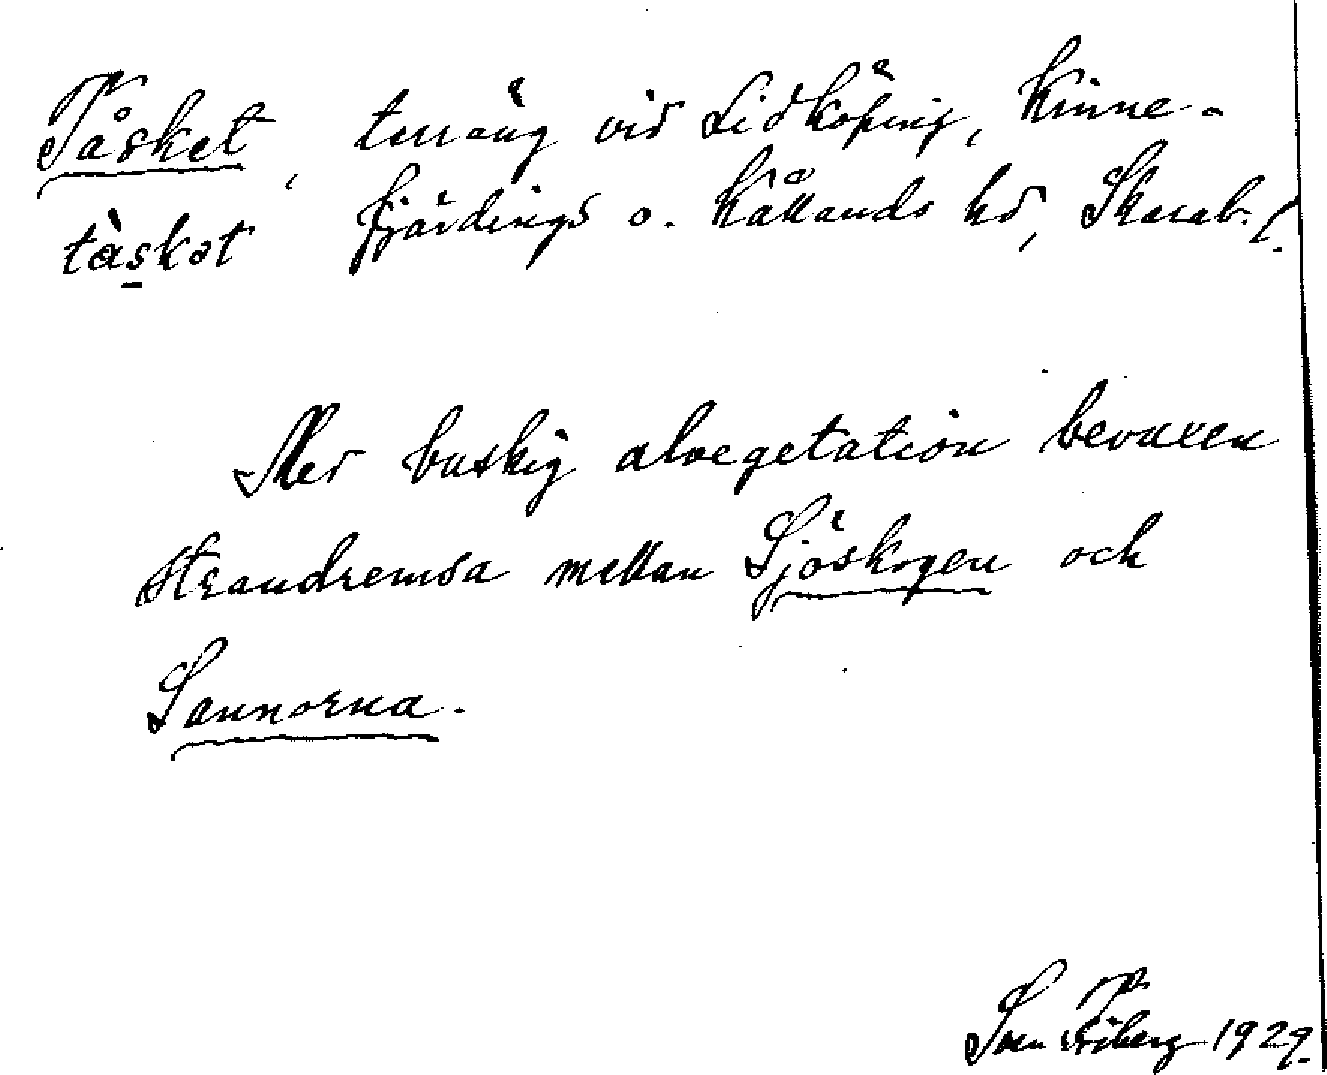 Tåsket, terräng vid Lidköping, Kinne-
tàskət fjärdings o. Kållands hd, Skarab. l.
Med buskig alvegetation bevuxen
strandremsa mellan Sjöskogen och
Sannorna.
Sven Friberg 1929.